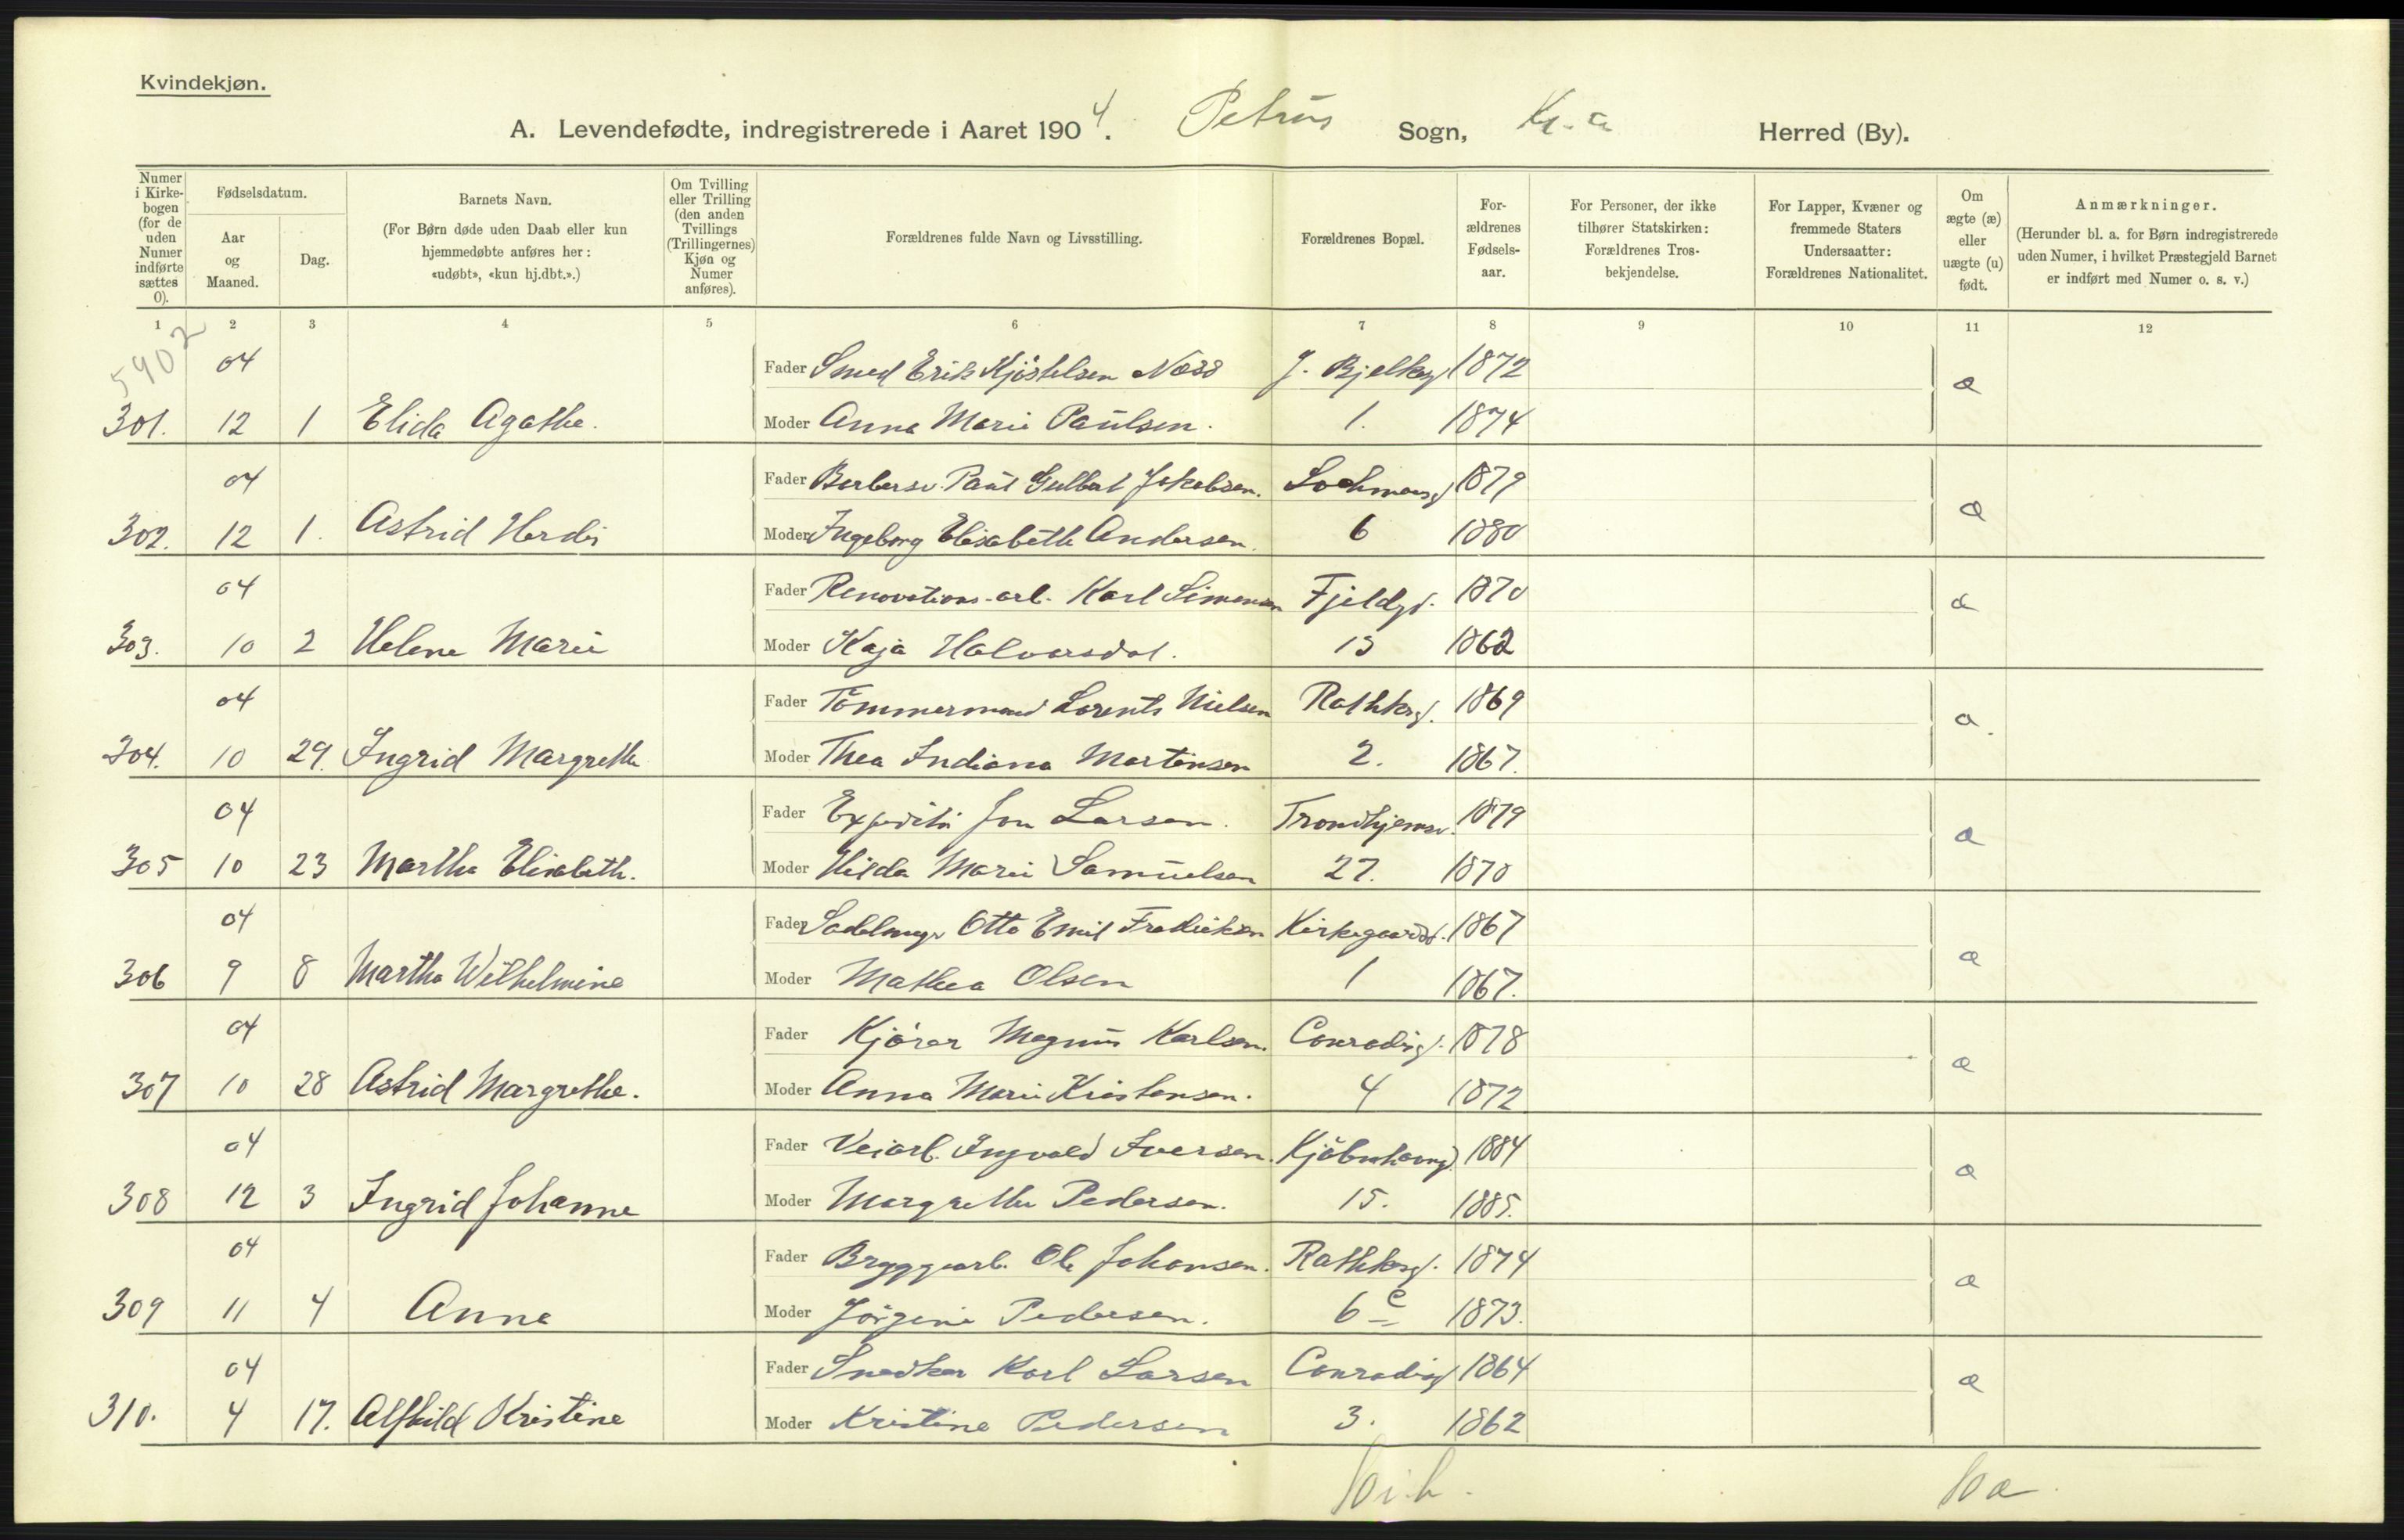 Kvindekjøn.
A. Levendefødte, indregistrerede i Aaret 1904. Petrus Sogn, Kr.a Herred (By).
Numer i Kirkebogen (for de uden Numer indførte sættes 0).
Fødselsdatum.
Aar og Maaned.
Dag.
Barnets Navn.
(For Børn døde uden Daab eller kun hjemmedøbte anføres her: «udøbt», «kun hj.dbt.».)
Om Tvilling eller Trilling (den anden Tvillings (Trillingernes) Kjøn og Numer anføres).
Forældrenes fulde Navn og Livsstilling.
Forældrenes Bopæl.
For-ældrenes Fødsels-aar.
For Personer, der ikke tilhører Statskirken: Forældrenes Tros-bekjendelse.
For Lapper, Kvæner og fremmede Staters Undersaatter: Forældrenes Nationalitet.
Om ægte (æ) eller uægte (u) født.
Anmærkninger.
(Herunder bl. a. for Børn indregistrerede uden Numer, i hvilket Præstegjeld Barnet er indført med Numer o. s. v.)
1 2 3 4 5 6 7 8 9 10 11 12
5902
04 Fader Smed Erik Kjöstelsen Næss J. Bjelkesg 1872 æ
301. 12 1 Elida Agathe. Moder Anna Marie Paulsen. 1. 1874
04 Fader Barbersv. Paul Gulbert Jakobsen. Lochmansg 1879 æ
302. 12 1. Astrid Herdis Moder Ingeborg Elisabeth Andersen. 6 1880
04 Fader Renovations-arb. Karl Simensen Fjeldgd. 1870 æ
303. 10 2 Helene Marie Moder Kaja Halvorsdat. 13 1862
04 Fader Tömmermand Lorents Nielsen Rathkesg. 1869 æ.
304. 10 29. Ingrid Margrethe Moder Thea Indiana Martinsen 2. 1867.
04 Fader Expeditör Jon Larsen. Trondhjemsv. 1879 æ
305 10 23 Martha Elisabeth. Moder Hilda Marie Samuelsen 27. 1870
04 Fader Sadelmager Otto Emil Fredriksen Kirkegaardsg. 1867 æ
306 9 8 Martha Wilhelmine Moder Mathea Olsen 1 1867.
04 Fader Kjörer Magnus Karlsen. Conradisg. 1878 æ
307 10 28 Astrid Margrethe. Moder Anna Marie Kristensen. 4 1872
04 Fader Veiarb. Ingvald Iversen. Kjöbenhavng. 1884 æ
308 12 3 Ingrid Johanne Moder Margrethe Pedersen. 15. 1885.
04 Fader Bryggearb. Ole Johansen. Rathkesg. 1874 æ
309 11 4 Anna Moder Jörgine Pedersen. 6 c 1873.
04 Fader Snedker Karl Larsen Conradisg 1864 æ
310. 4 17. Alfhild Kristine Moder Kristine Pedersen 3. 1862
10 i.b. 10 æ